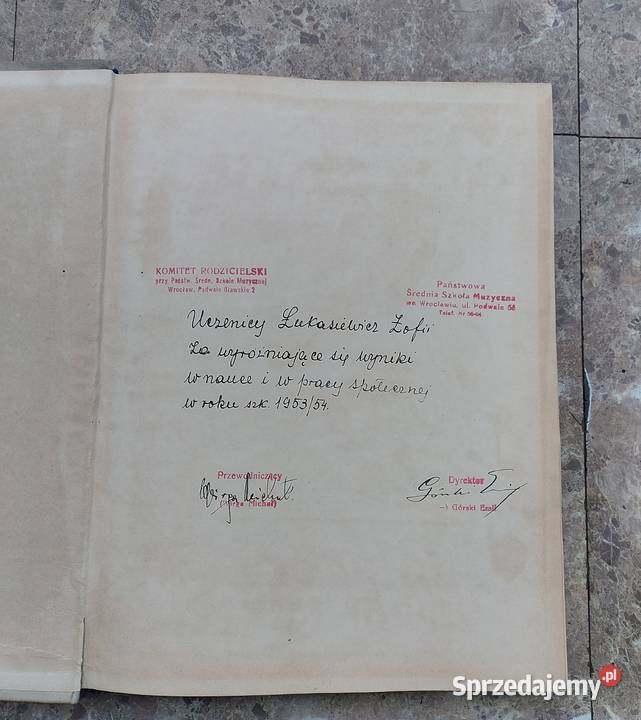 KOMITET RODZICIELSKI
przy Państw. Średn. Szkole Muzycznej
Wrocław, Podwale Oławskie 2
Państwowa
Średnia Szkoła Muzyczna
we Wrocławiu, ul. Podwale 68
Telef. Nr
Uczenicy Łukasiewicz Zofii
Za wyróżniające się wyniki
w nauce i w pracy społecznej
w roku szk. 1953/54.
Przewodniczący
Michał
Michał)
Dyrektor
Górski Emil
Sprzedajemy.pl